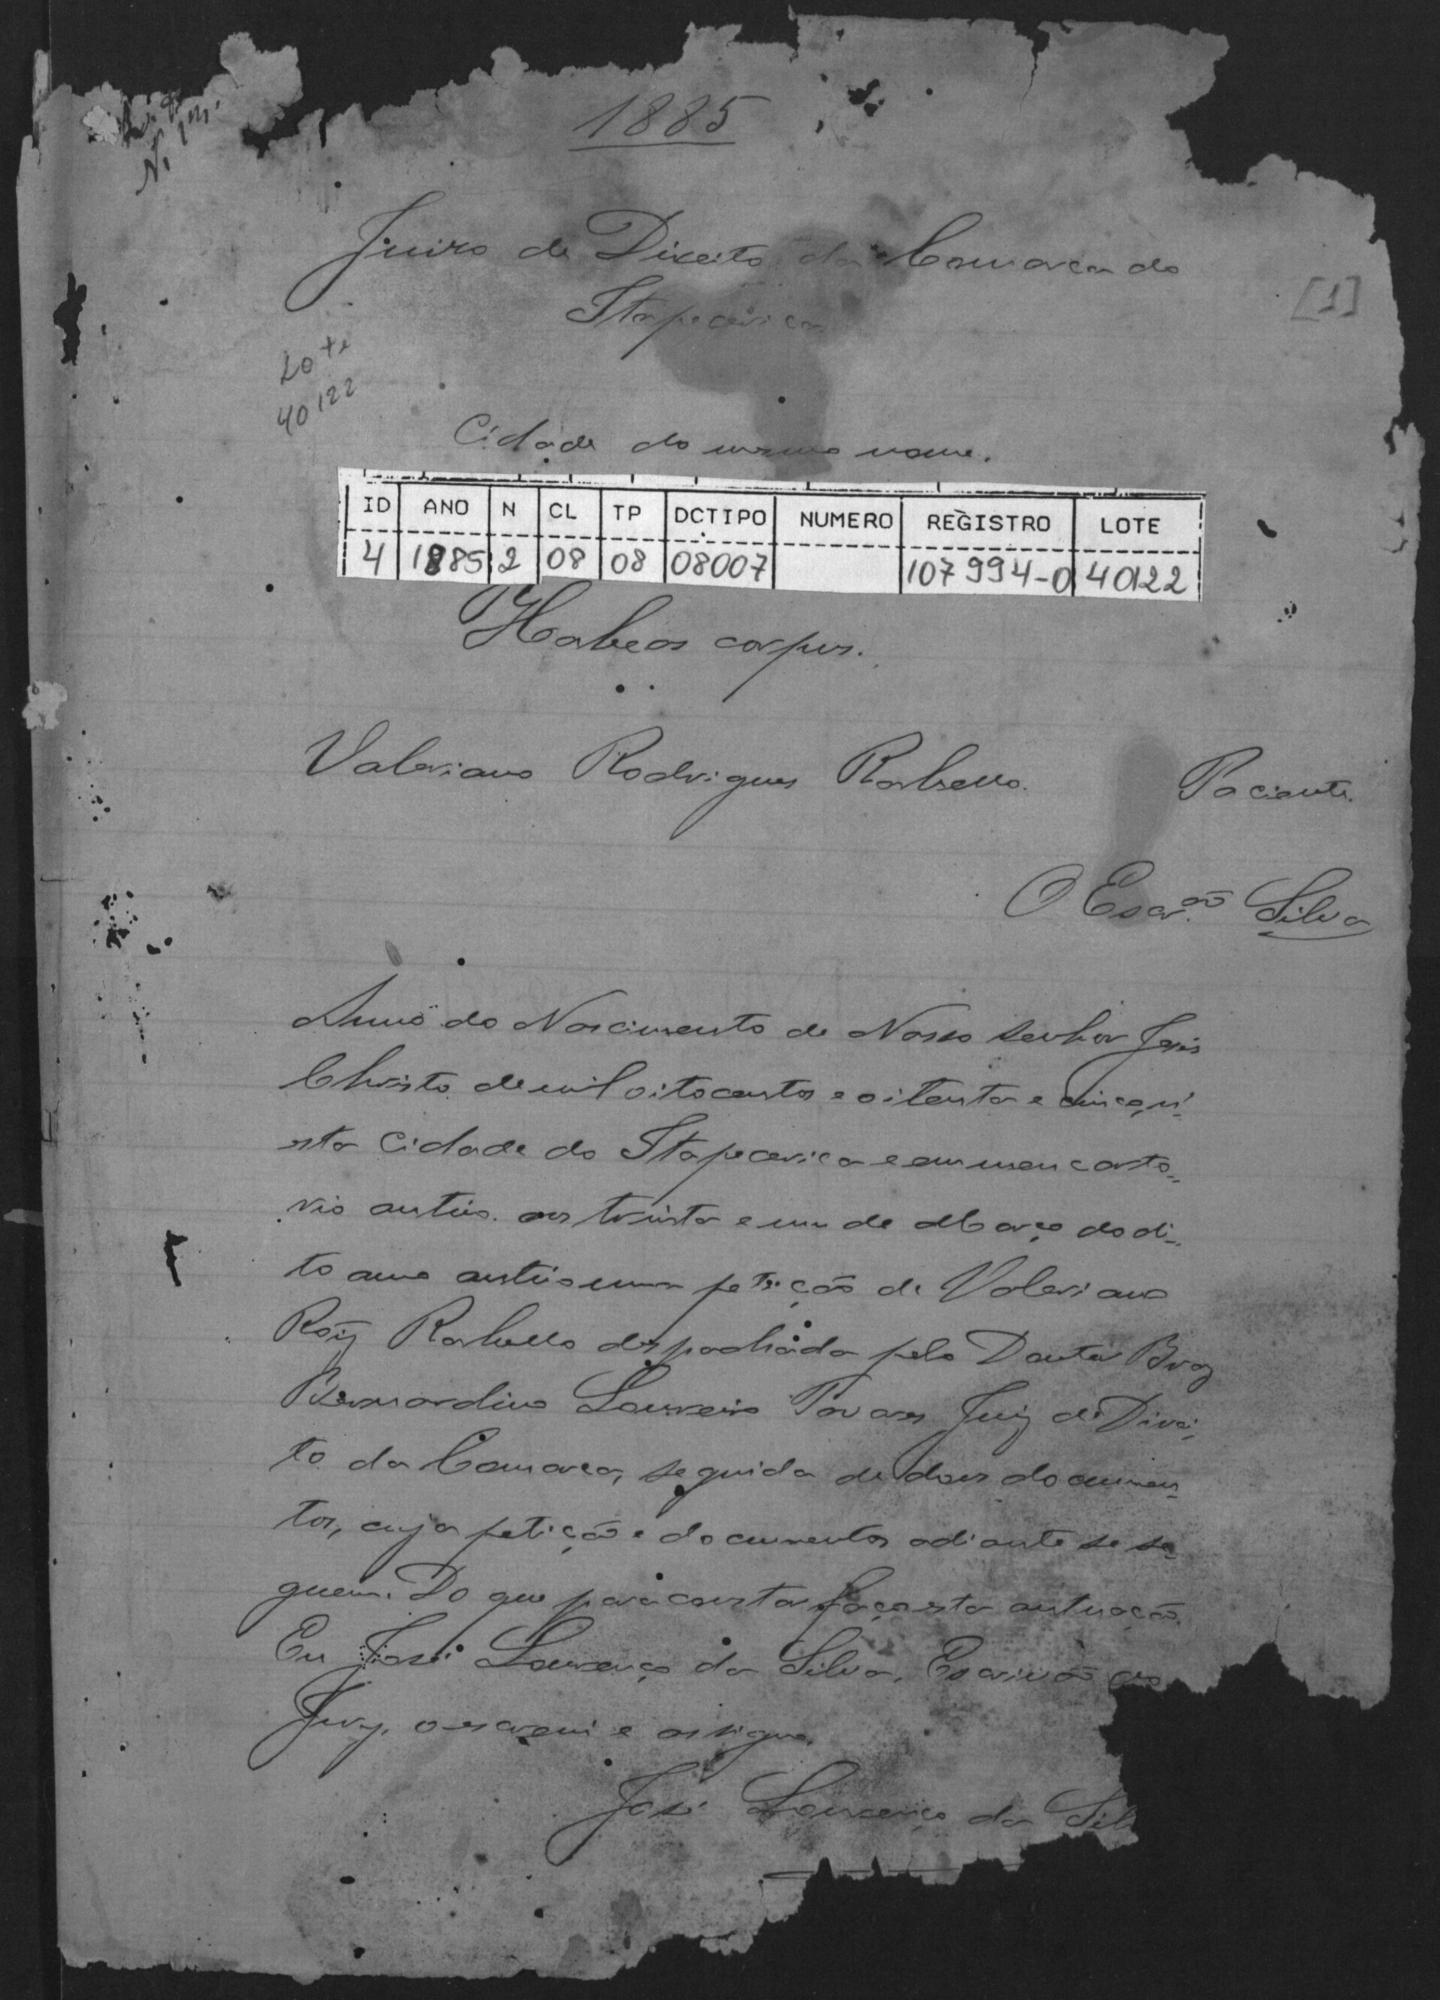 1885
Juizo de Direito da Comarca do
Itapecerica
[1]
Lote
40122
Cidade do mesmo nome.
ID ANO N CL TP DCTIPO NUMERO REGISTRO LOTE
4 1885 2 08 08 08007 107994-0 40122
Habeas corpus.
Valeriano Rodrigues Rabello. Paciente.
O Escr.ão Silva
Anno do Nascimento de Nosso Senhor Jesus
Christo de mil oitocentos e oitenta e cinco, n'-
esta Cidade do Itapecerica e em meu carto-
rio autúo. aos trinta e um de Março do di-
to anno autúo uma petição de Valeriano
Roiz Rabello despachada pelo Doutor Braz
Bernardino Loureiro Tavares Juiz de Direi-
to da Comarca, seguida de dous documen-
tos, cuja petição e documentos adiante se se-
guem. Do que para constar faço esta autuação.
Eu José Lourenço da Silva, Escrivão do
Jury, o escrevi e assigno.
José Lourenço da Sil